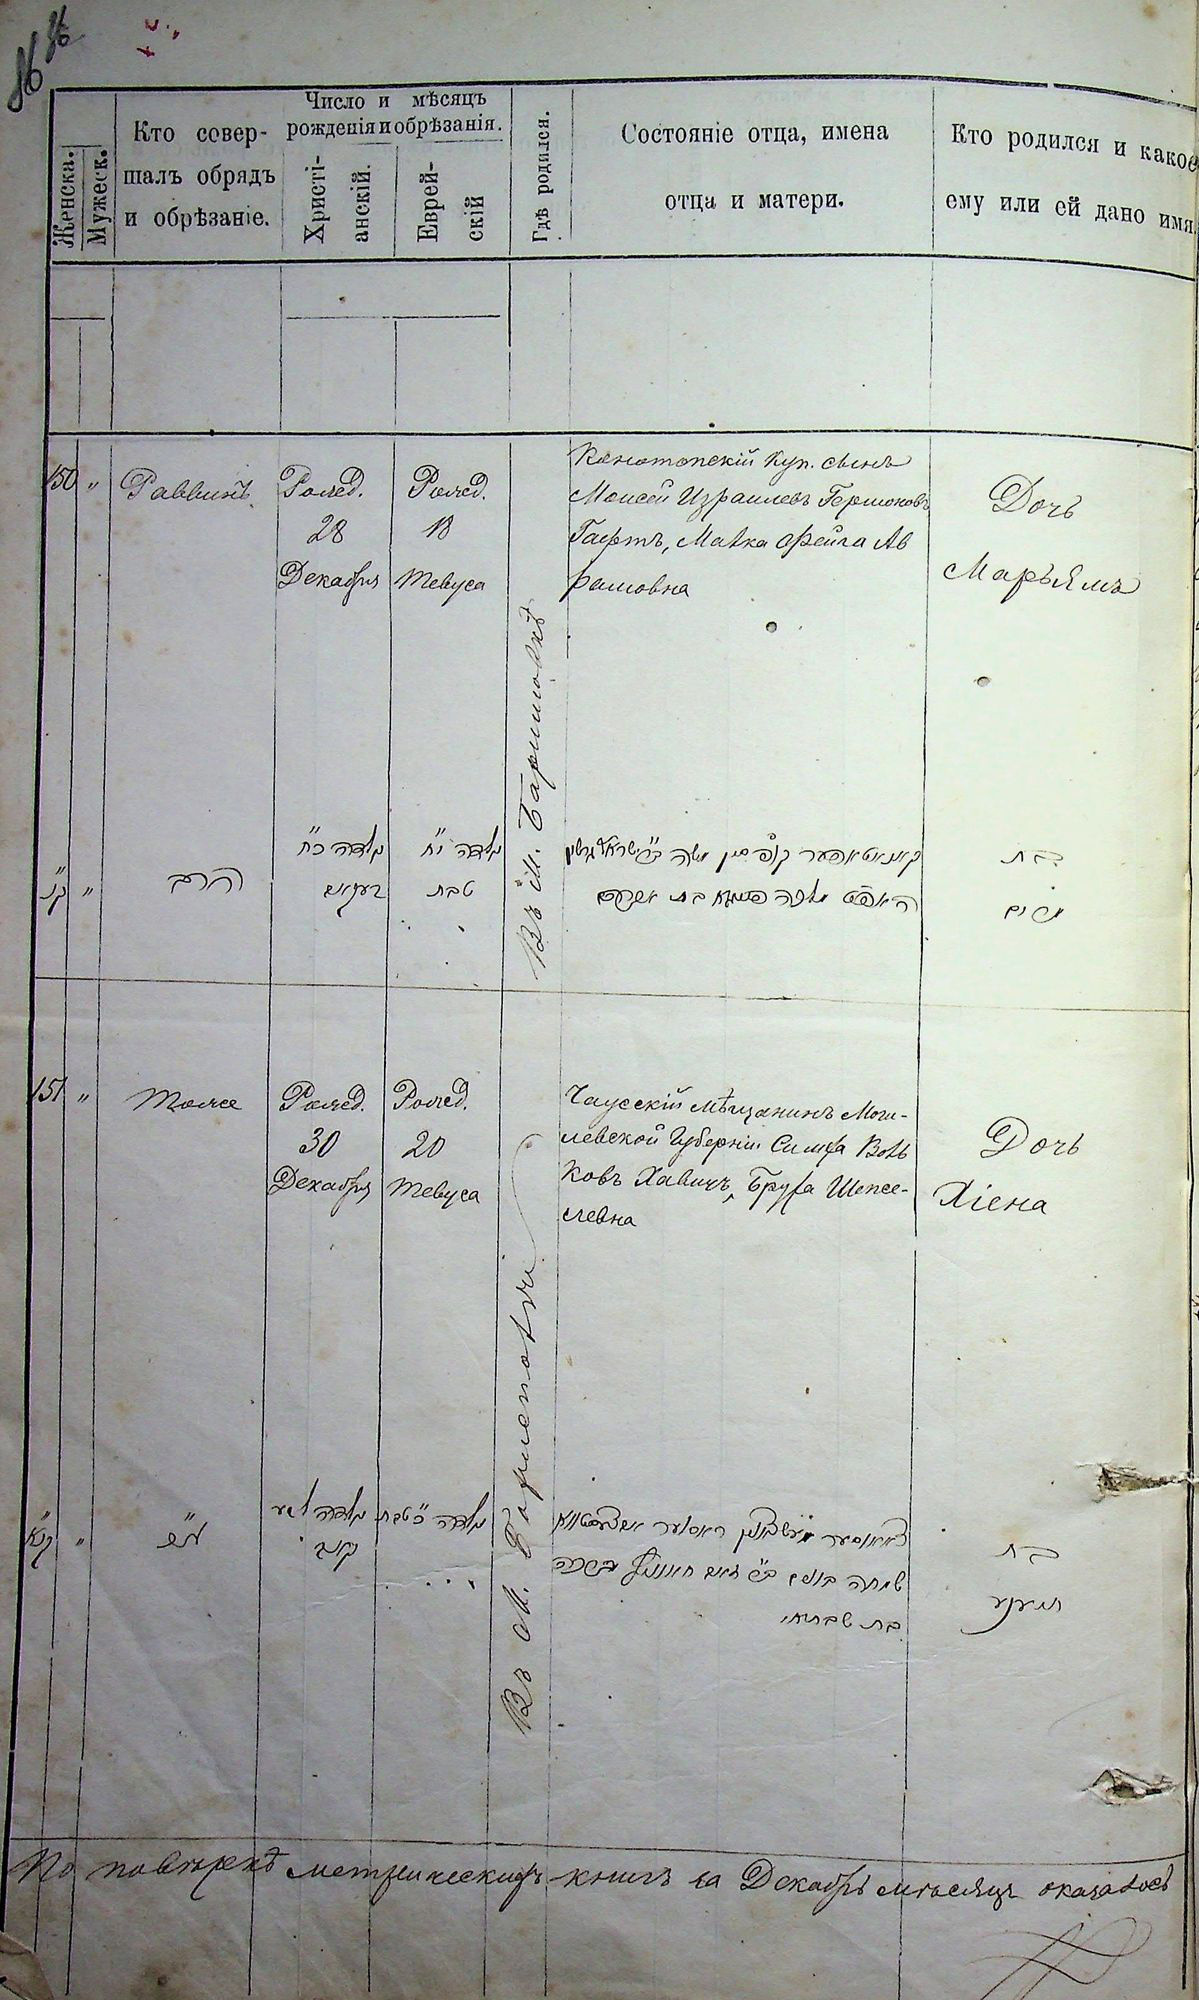 86
Женска.
Мужеск.
Кто совер-
шалъ обрядъ
и обрѣзаніе.
Число и мѣсяцъ
рожденія и обрѣзанія.
Христі-
анскій.
Еврей-
скій
Гдѣ родился.
Состояніе отца, имена
отца и матери.
Кто родился и какое
ему или ей дано имя.
150 "
Раввинъ
Рожд.
28
Декабря
Рожд.
18
Тевуса
Въ м. Баришовкѣ
Конотопскій Куп. сынъ
Моисей Израилевъ Гершоновъ
Гафтъ, Малка Фейга Ав
рамовна
Дочь
Марьямъ
ק״נ "
הרב
נולדה כ״ח
דעקאב
נולדה י״ח
טבת
בת
מרים
151 "
Тоже
Рожд.
30
Декабря
Рожд.
20
Тевуса
Въ м. Борисполи
Чаусскій мѣщанинъ Моги-
левской Губерніи Симха Воль
ковъ Хавинъ, Бруха Шепсе-
левна
Дочь
Хіена
קנ״א "
נולדה כ׳ טבת
בת שבתי
בת
חיענע
По повѣркѣ метрическихъ книгъ за Декабрь мѣсяцъ оказалось